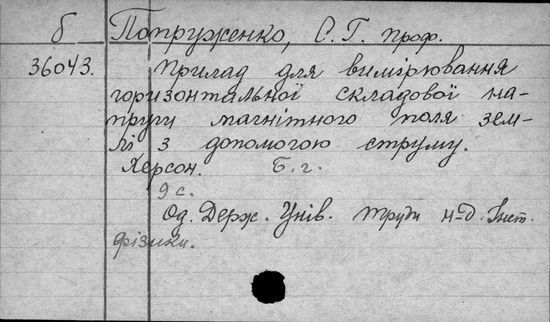 б Попруженко, С. Г. проф.
36043. Прилад для вимірювання
горизонтальної складової на-
пруги магнітного поля зем-
лі з допомогою струму.
Херсон. Б. г.
9 с.
Од. Держ. Унів. Труди н-д. Інст.
фізики.